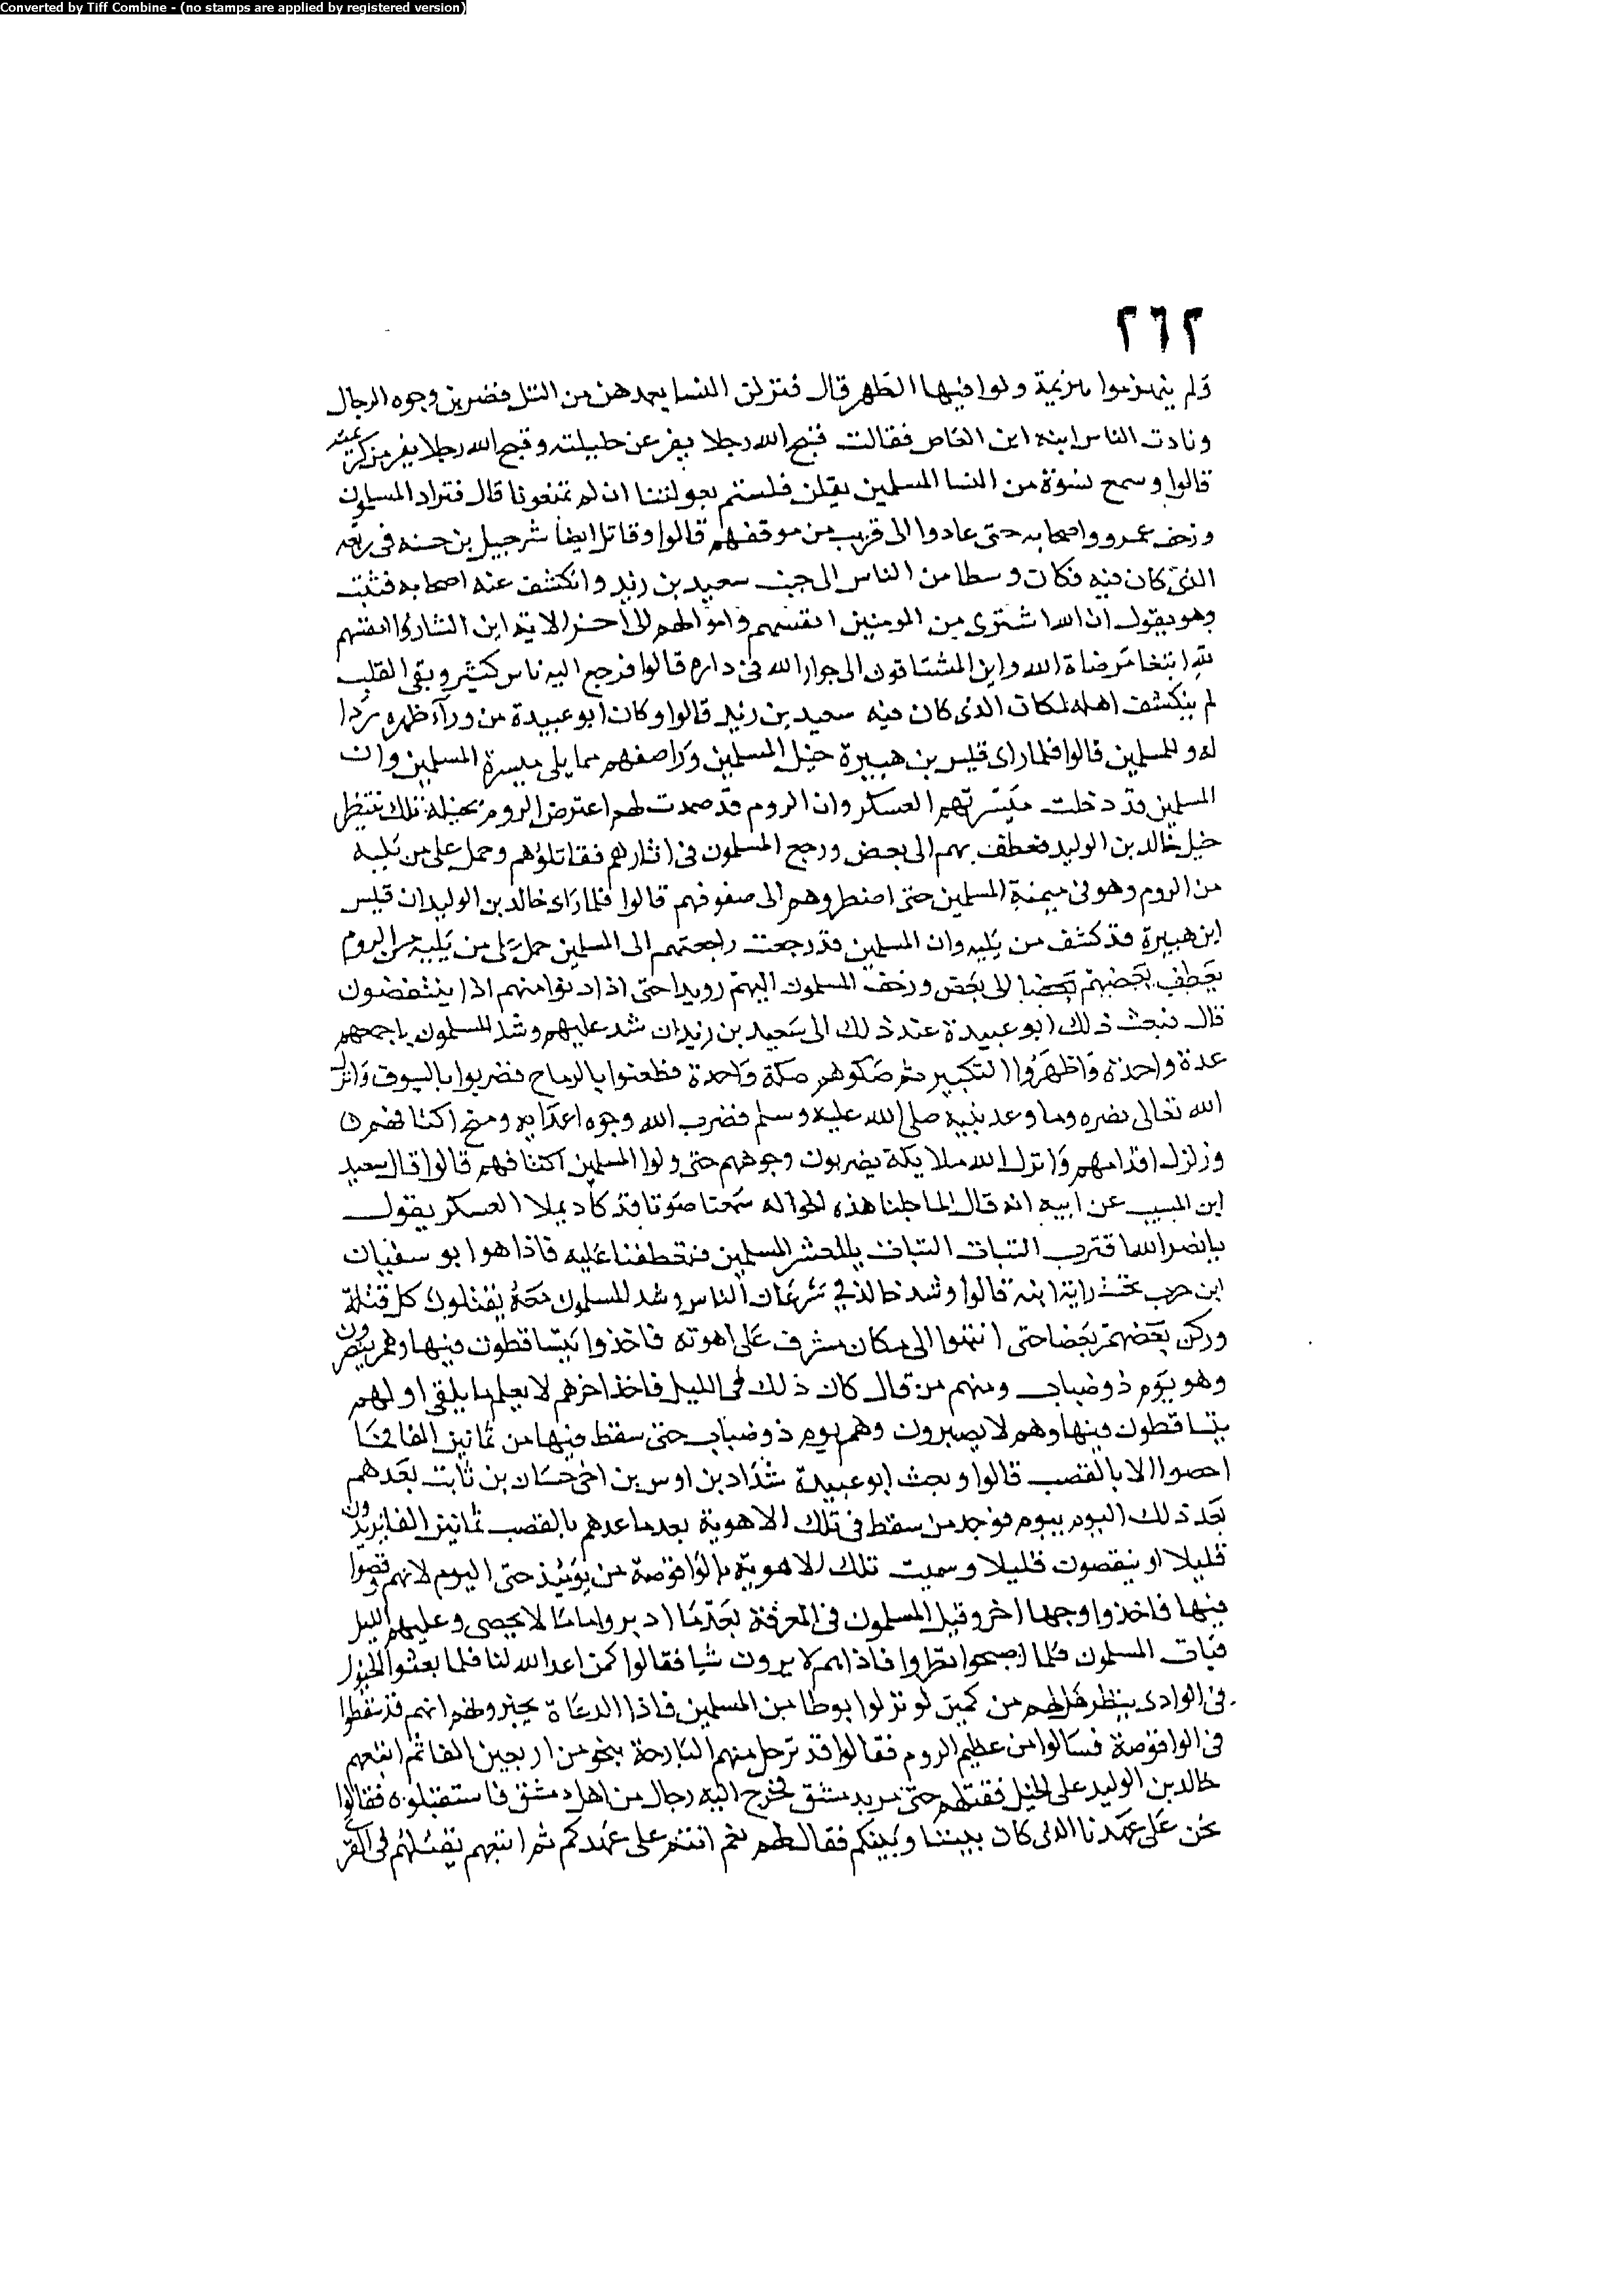 Converted by Tiff Combine - (no stamps are applied by registered version)
٢٦٢
ولم ينهزموا هزيمة ولوا فيها الظهر قال فنزلن النسا بعمدهن من التل فضربن وجوه الرجال
ونادت الناس ابنه ابن العاص فقالت قبح الله رجلا يفر عن حليلته وقبح الله رجلا يفر من كريمته
قالوا وسمع نسوة من النسا المسلمين يقلن فلستم بعولتنا ان لم تمنعونا قال فتراد المسلمون
وزحف عمرو واصحابه حتى عادوا الى قريب من موقفهم قالوا وقاتل ايضا شرحبيل بن حسنه فى ربعه
الذى كان فيه فكان وسطا من الناس الى جنب سعيد بن زيد وانكشف عنه اصحابه فثبت
وهو يقول ان الله اشترى من المومنين انفسهم واموالهم الى اخر الاية اين الشاروا انفسهم
لله ابتغا مرضاة الله واين المشتاقون الى جوار الله فى داره قالوا فرجع اليه ناس كثير وبقى القلب
لم ينكشف اهله لمكان الذى كان فيه سعيد بن زيد قالوا وكان ابو عبيدة من ورآء ظهره ردا
له وللمسلمين قالوا فلما راى قيس بن هبيرة خيل المسلمين وراصفهم مما يلى ميسرة المسلمين وان
المسلمين قد دخلت ميسرتهم العسكر وان الروم قد صمدت لهم اعترض الروم بخيله تلك ينتظر
خيل خالد بن الوليد فعطف بهم الى بعض ورجع المسلمون فى اثارهم فقاتلوهم وحمل على من يليه
من الروم وهو فى ميمنة المسلمين حتى اضطروهم الى صفوفهم قالوا فلما راى خالد بن الوليد ان قيس
ابن هبيرة قد كشف من يليه وان المسلمين قد رجعت راجعتهم الى المسلمين حمل على من يليه من الروم
يعطف بعضهم بعضا الى بعض وزحف المسلمون اليهم رويدا حتى اذا دنوا منهم اذا ينتقضون
قال فبعث ذلك ابو عبيدة عند ذلك الى سعيد بن زيد ان شد عليهم وشد المسلمون باجمعهم
عدة واحدة واظهروا التكبير ثم صكوهم صكة واحدة فطعنوا بالرماح فضربوا بالسيوف وانزل
الله تعالى نصره وما وعد نبيه صلى الله عليه وسلم فضرب الله وجوه اعدايه ومنح اكتافهم
وزلزل اقدامهم وانزل الله ملايكة يضربون وجوههم حتى ولوا المسلمين اكتافهم قالوا قال سعيد
ابن المسيب عن ابيه انه قال لما جلنا هذه الجواله سمعنا صوتا قد كاد يملا العسكر يقول
يا نصر الله اقترب الثبات الثبات يا معشر المسلمين فتعطفنا عليه فاذا هو ابو سفيان
ابن حرب تحت راية ابنه قالوا وشد خالد فى سرعان الناس وشد المسلمون معه يقتلون كل قتلة
وركن بعضهم بعضا حتى انتهوا الى مكان مشرف على اهوته فاخذوا يتساقطون فيها وهم يبصرون
وهو يوم ذو ضباب ومنهم من قال كان ذلك فى الليل فاخذ اخرهم لا يعلم ما يلقى اولهم
يتساقطون فيها وهم لا يبصرون وهم يوم ذو ضباب حتى سقط فيها من ثمانين الفا فما
احصوا الا بالقصب قالوا وبعث ابو عبيدة شداد بن اوس بن اخى حسان بن ثابت بعدهم
بعد ذلك اليوم بيوم فوجد من سقط فى تلك الاهوية بعد ما عدهم بالقصب ثمانين الفا يزيدون
قليلا او ينقصون قليلا وسميت تلك الاهوية بالواقوصة من يومئذ حتى اليوم لانهم وقصوا
فيها فاخذوا وجها اخر وقيل المسلمون فى المعرفة بعد ما ادبروا ماما لا يحصى وعليهم الليل
فبات المسلمون فلما اصبحوا نظروا فاذا هم لا يرون شيا فقالوا كمن اعدا الله لنا فلما بعثوا الخيول
فى الوادى ينظر هل لهم من كمين لو نزلوا بوطا من المسلمين فاذا الدعاة يخبرونهم انهم قد سقطوا
فى الواقوصة فسالوا من عظيم الروم فقالوا قد ترحل منهم البارحة بنحو من اربعين الفا ثم اتبعهم
خالد بن الوليد على الخيل فقتلهم حتى مر بدمشق فخرج اليه رجال من اهل دمشق فاستقبلوه فقالوا
نحن على عهدنا الذى كان بيننا وبينكم فقال لهم نعم انتم على عهدكم ثم اتبعهم يقتلهم فى القر